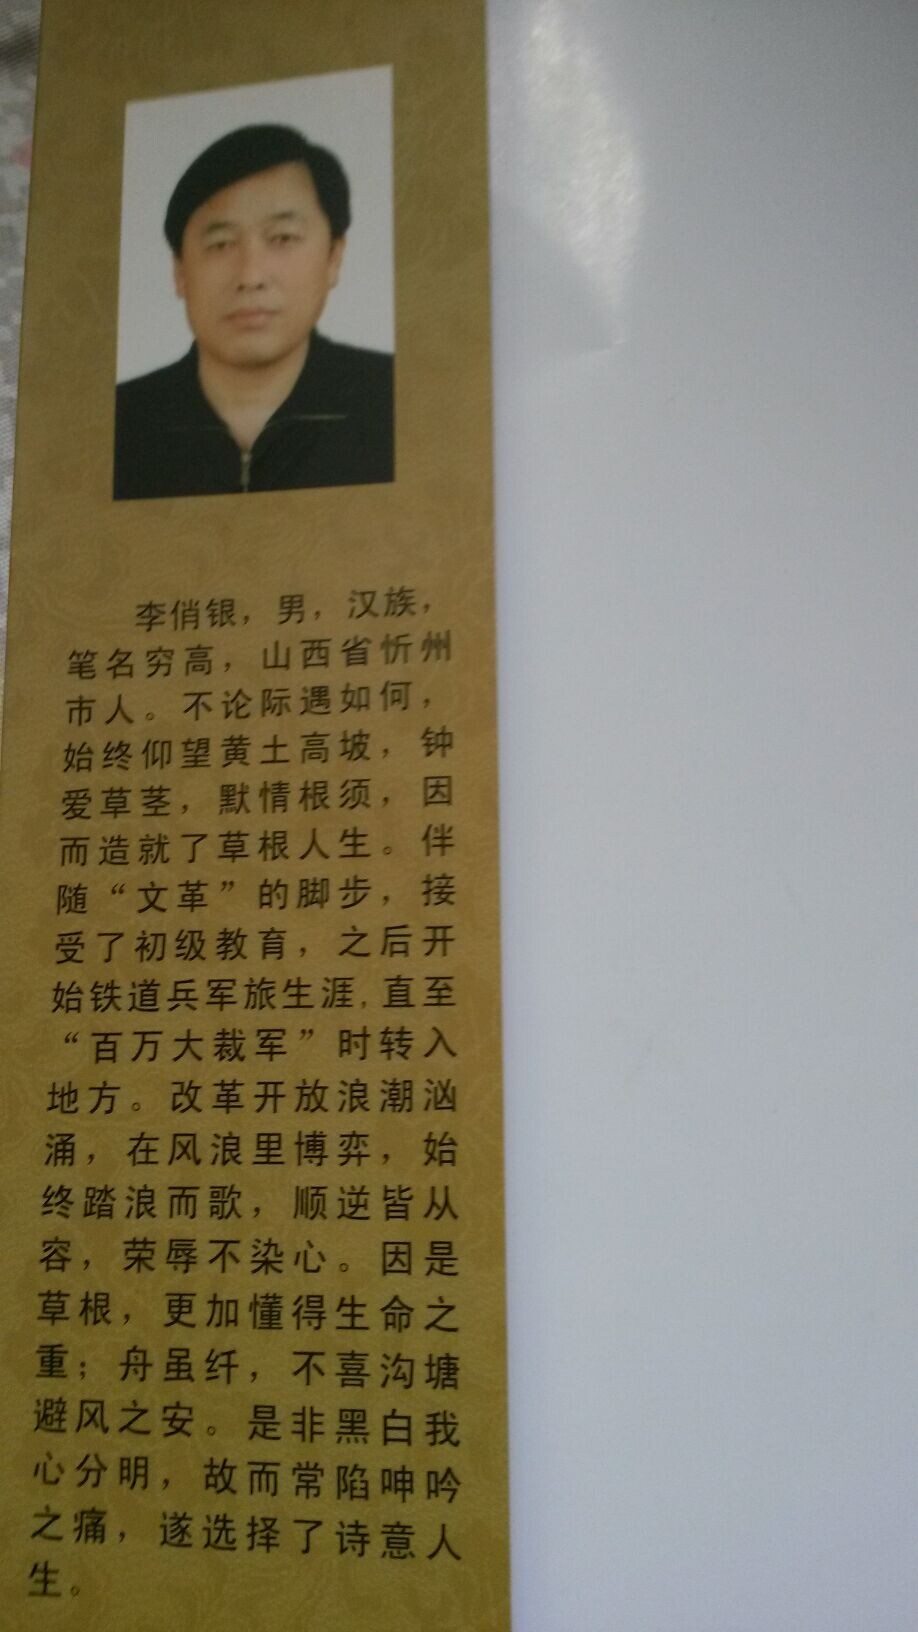 李俏银，男，汉族，
笔名穷高，山西省忻州
市人。不论际遇如何，
始终仰望黄土高坡，钟
爱草茎，默情根须，因
而造就了草根人生。伴
随“文革”的脚步，接
受了初级教育，之后开
始铁道兵军旅生涯，直至
“百万大裁军”时转入
地方。改革开放浪潮汹
涌，在风浪里博弈，始
终踏浪而歌，顺逆皆从
容，荣辱不染心。因是
草根，更加懂得生命之
重；舟虽纤，不喜沟塘
避风之安。是非黑白我
心分明，故而常陷呻吟
之痛，遂选择了诗意人
生。